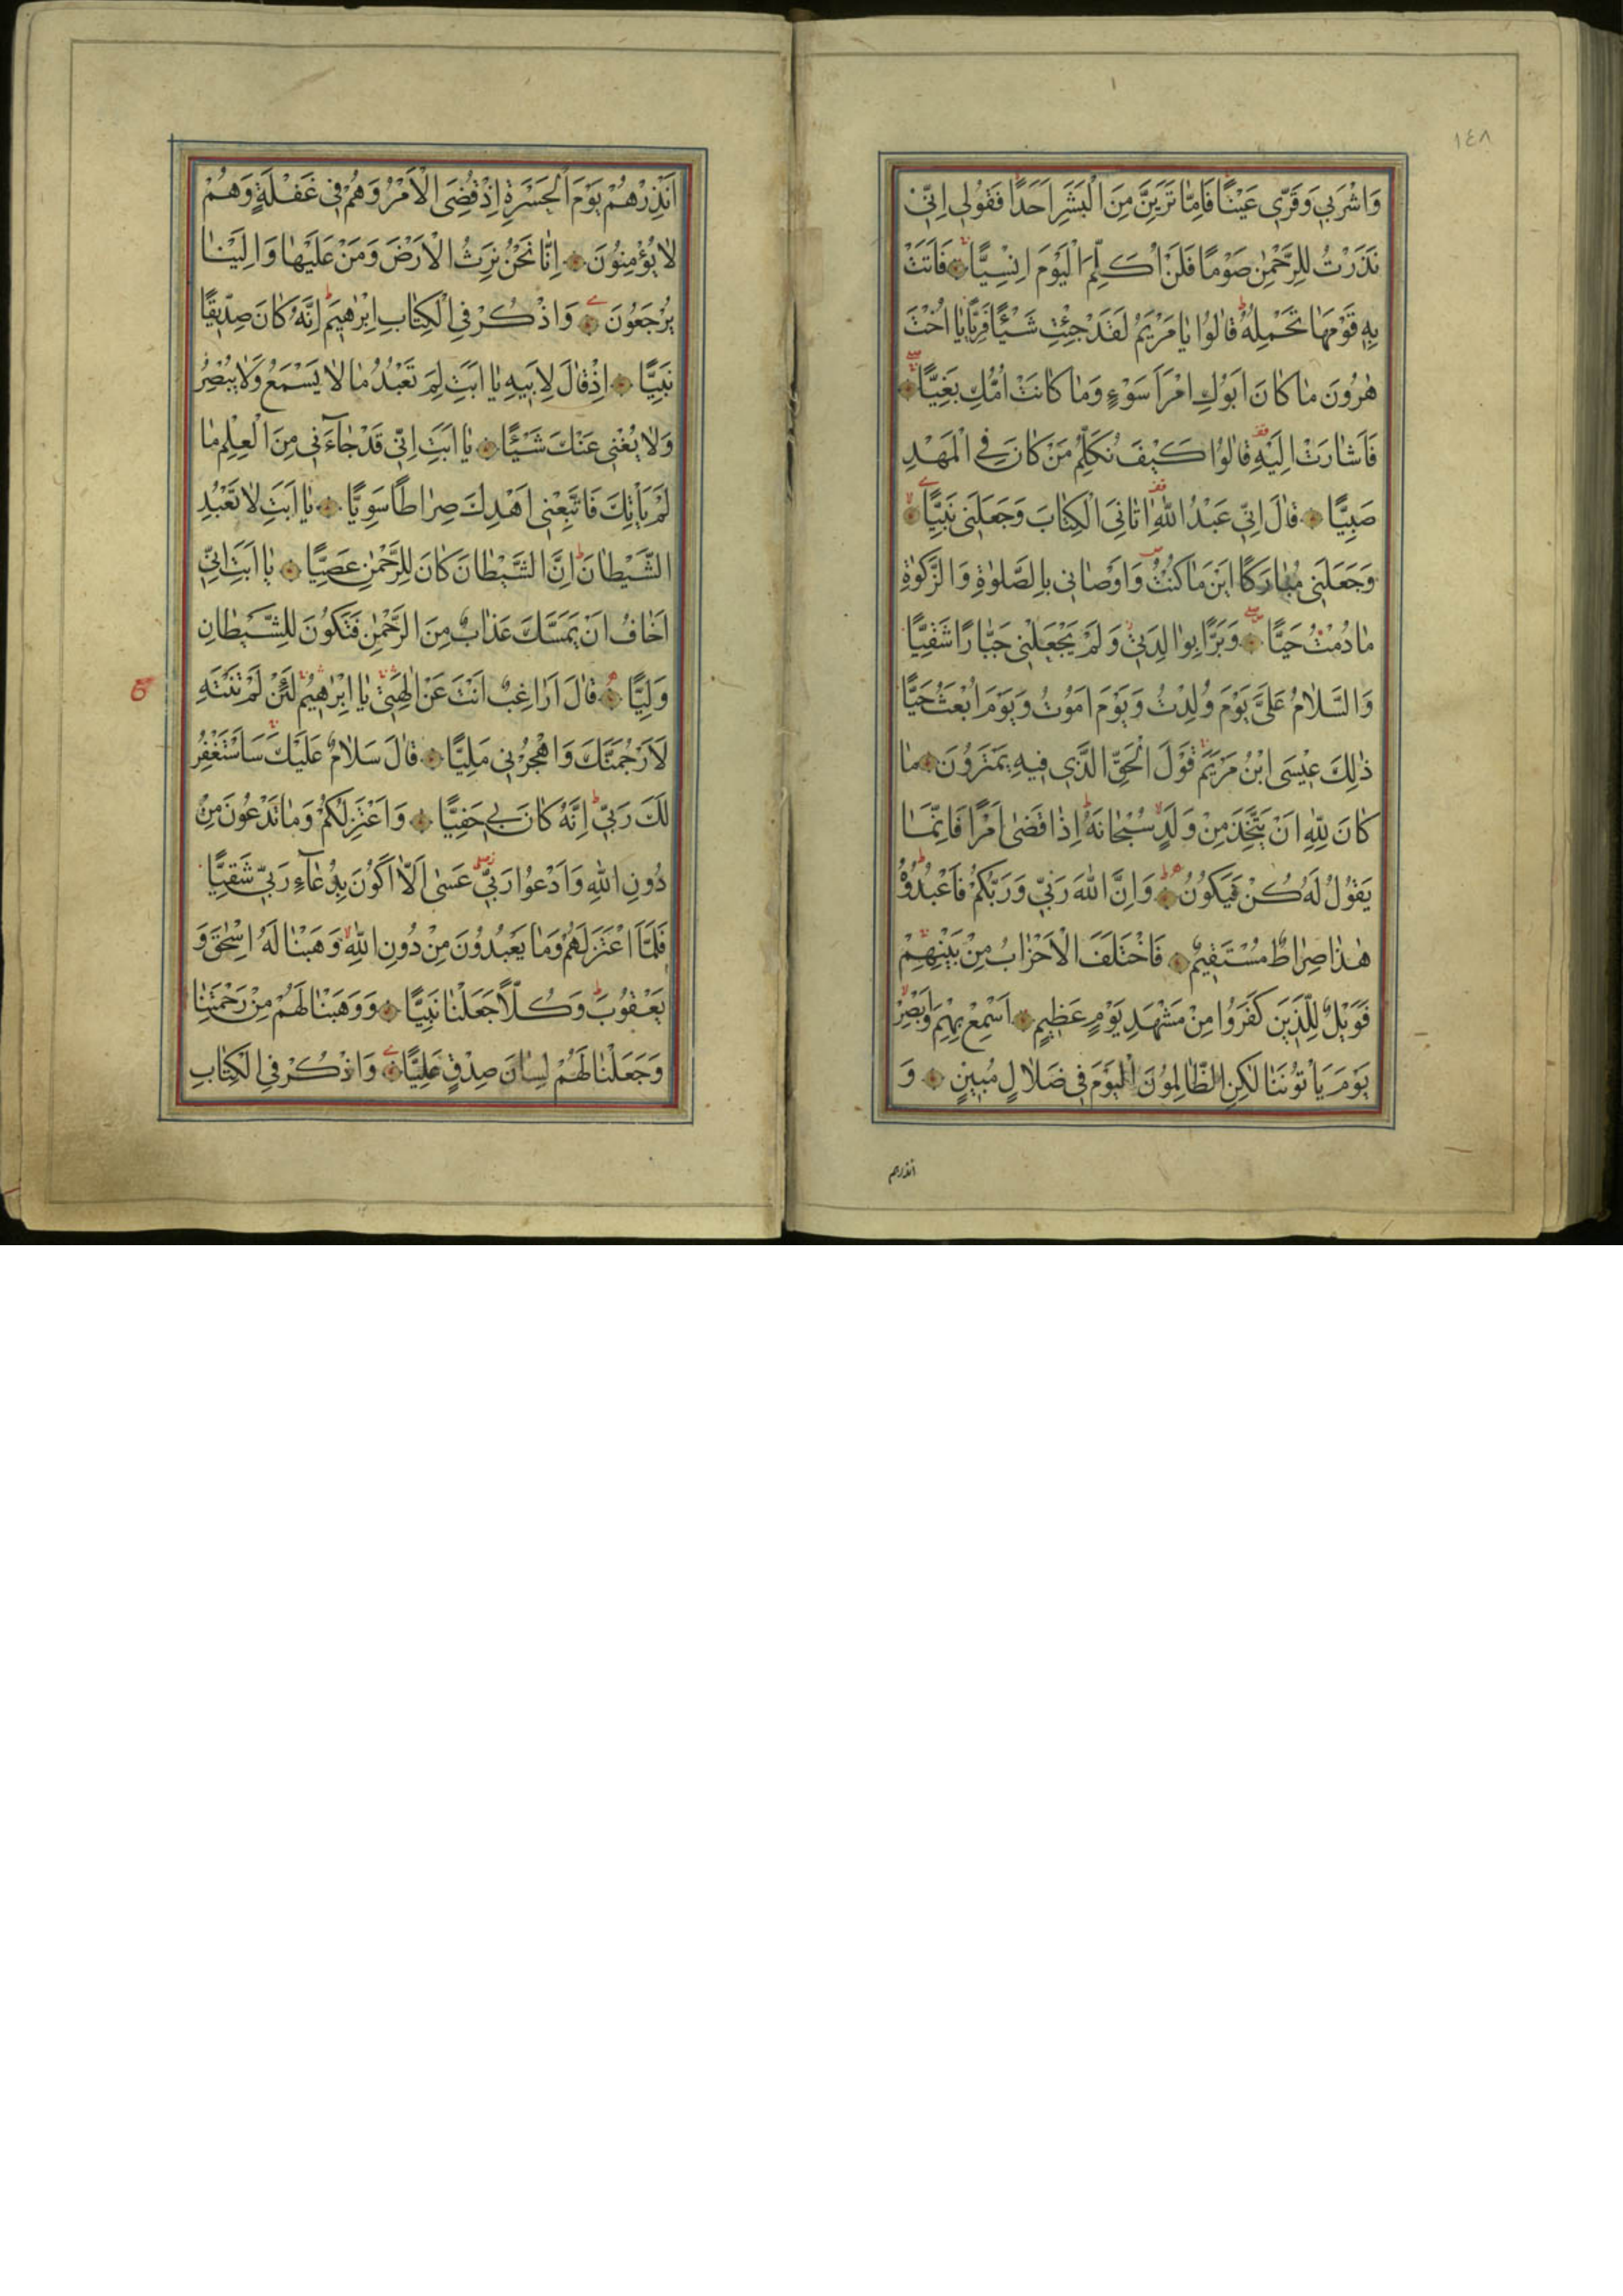 ١٤٨
وَاشْرَبِي وَقَرِّي عَيْنًا فَاِمَّا تَرَيِنَّ مِنَ الْبَشَرِ اَحَدًا فَقُولِي اِنِّي
نَذَرْتُ لِلرَّحْمٰنِ صَوْمًا فَلَنْ اُكَلِّمَ الْيَوْمَ اِنْسِيًّا فَاَتَتْ
بِهِ قَوْمَهَا تَحْمِلُهُ قَالُوا يَا مَرْيَمُ لَقَدْ جِئْتِ شَيْئًا فَرِيًّا يَا اُخْتَ
هٰرُونَ مَا كَانَ اَبُوكِ امْرَاَ سَوْءٍ وَمَا كَانَتْ اُمُّكِ بَغِيًّا
فَاَشَارَتْ اِلَيْهِ قَالُوا كَيْفَ نُكَلِّمُ مَنْ كَانَ فِي الْمَهْدِ
صَبِيًّا قَالَ اِنِّي عَبْدُ اللّٰهِ اٰتَانِيَ الْكِتَابَ وَجَعَلَنِي نَبِيًّا
وَجَعَلَنِي مُبَارَكًا اَيْنَ مَا كُنْتُ وَاَوْصَانِي بِالصَّلٰوةِ وَالزَّكٰوةِ
مَا دُمْتُ حَيًّا وَبَرًّا بِوَالِدَتِي وَلَمْ يَجْعَلْنِي جَبَّارًا شَقِيًّا
وَالسَّلَامُ عَلَيَّ يَوْمَ وُلِدْتُ وَيَوْمَ اَمُوتُ وَيَوْمَ اُبْعَثُ حَيًّا
ذٰلِكَ عِيسَى ابْنُ مَرْيَمَ قَوْلَ الْحَقِّ الَّذِي فِيهِ يَمْتَرُونَ مَا
كَانَ لِلّٰهِ اَنْ يَتَّخِذَ مِنْ وَلَدٍ سُبْحَانَهُ اِذَا قَضٰى اَمْرًا فَاِنَّمَا
يَقُولُ لَهُ كُنْ فَيَكُونُ وَاِنَّ اللّٰهَ رَبِّي وَرَبُّكُمْ فَاعْبُدُوهُ
هٰذَا صِرَاطٌ مُسْتَقِيمٌ فَاخْتَلَفَ الْاَحْزَابُ مِنْ بَيْنِهِمْ
فَوَيْلٌ لِلَّذِينَ كَفَرُوا مِنْ مَشْهَدِ يَوْمٍ عَظِيمٍ اَسْمِعْ بِهِمْ وَاَبْصِرْ
يَوْمَ يَاْتُونَنَا لٰكِنِ الظَّالِمُونَ الْيَوْمَ فِي ضَلَالٍ مُبِينٍ وَ
انذرهم
اَنْذِرْهُمْ يَوْمَ الْحَسْرَةِ اِذْ قُضِيَ الْاَمْرُ وَهُمْ فِي غَفْلَةٍ وَهُمْ
لَا يُؤْمِنُونَ اِنَّا نَحْنُ نَرِثُ الْاَرْضَ وَمَنْ عَلَيْهَا وَاِلَيْنَا
يُرْجَعُونَ وَاذْكُرْ فِي الْكِتَابِ اِبْرٰهِيمَ اِنَّهُ كَانَ صِدِّيقًا
نَبِيًّا اِذْ قَالَ لِاَبِيهِ يَا اَبَتِ لِمَ تَعْبُدُ مَا لَا يَسْمَعُ وَلَا يُبْصِرُ
وَلَا يُغْنِي عَنْكَ شَيْئًا يَا اَبَتِ اِنِّي قَدْ جَاۤءَنِي مِنَ الْعِلْمِ مَا
لَمْ يَاْتِكَ فَاتَّبِعْنِي اَهْدِكَ صِرَاطًا سَوِيًّا يَا اَبَتِ لَا تَعْبُدِ
الشَّيْطَانَ اِنَّ الشَّيْطَانَ كَانَ لِلرَّحْمٰنِ عَصِيًّا يَا اَبَتِ اِنِّي
اَخَافُ اَنْ يَمَسَّكَ عَذَابٌ مِنَ الرَّحْمٰنِ فَتَكُونَ لِلشَّيْطَانِ
وَلِيًّا قَالَ اَرَاغِبٌ اَنْتَ عَنْ اٰلِهَتِي يَا اِبْرٰهِيمُ لَئِنْ لَمْ تَنْتَهِ
لَاَرْجُمَنَّكَ وَاهْجُرْنِي مَلِيًّا قَالَ سَلَامٌ عَلَيْكَ سَاَسْتَغْفِرُ
لَكَ رَبِّي اِنَّهُ كَانَ بِي حَفِيًّا وَاَعْتَزِلُكُمْ وَمَا تَدْعُونَ مِنْ
دُونِ اللّٰهِ وَاَدْعُوا رَبِّي عَسٰى اَلَّا اَكُونَ بِدُعَاۤءِ رَبِّي شَقِيًّا
فَلَمَّا اعْتَزَلَهُمْ وَمَا يَعْبُدُونَ مِنْ دُونِ اللّٰهِ وَهَبْنَا لَهُ اِسْحٰقَ وَ
يَعْقُوبَ وَكُلًّا جَعَلْنَا نَبِيًّا وَوَهَبْنَا لَهُمْ مِنْ رَحْمَتِنَا
وَجَعَلْنَا لَهُمْ لِسَانَ صِدْقٍ عَلِيًّا وَاذْكُرْ فِي الْكِتَابِ